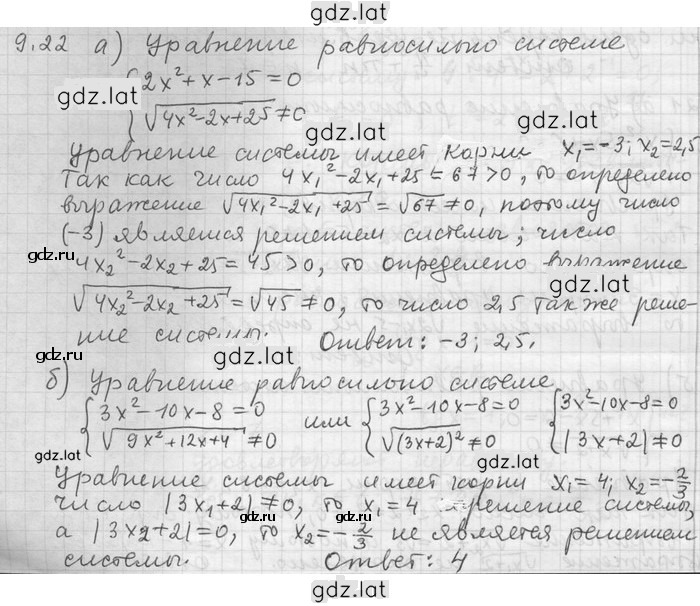 gdz.lat
9.22 а) Уравнение равносильно системе
{2x²+x-15=0
gdz.lat
√(4x²-2x+25) ≠0
gdz.lat
Уравнение системы имеет корни x₁=-3; x₂=2,5
gdz.lat
Так как число 4x₁²-2x₁+25=67>0, то определено
выражение √(4x₁²-2x₁+25)=√67≠0, поэтому число
gdz.lat gdz.lat
(-3) является решением системы; число
4x₂²-2x₂+25=45>0, то определено выражение
gdz.lat
√(4x₂²-2x₂+25)=√45≠0, то число 2,5 также реше-
ние системы. Ответ: -3; 2,5.
gdz.lat
б) Уравнение равносильно системе
gdz.lat
{3x²-10x-8=0 или {3x²-10x-8=0 {3x²-10x-8=0
√(9x²+12x+4) ≠0 √(3x+2)² ≠0 |3x+2|≠0
gdz.lat gdz.lat
Уравнение системы имеет корни x₁=4; x₂=-2/3
число |3x₁+2|≠0, то x₁=4 решение системы,
gdz.lat
а |3x₂+2|=0, то x₂=-2/3 не является решением
gdz.lat
системы. Ответ: 4
gdz.lat